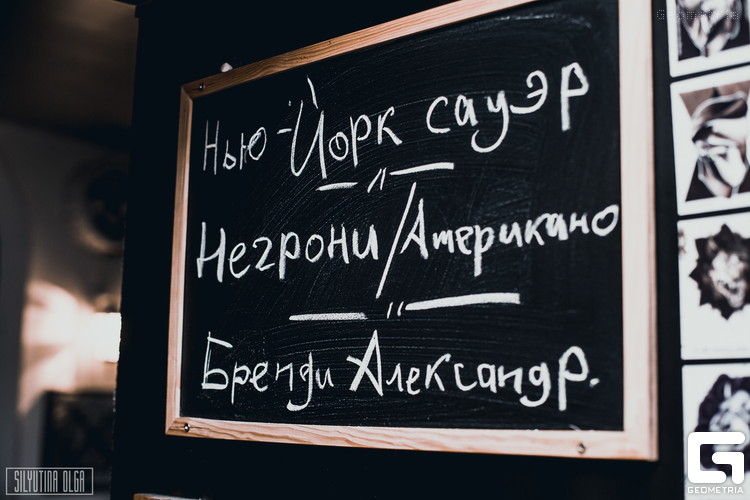 Нью-Йорк сауэр
Негрони/Американо
Бренди Александр.
SILYUTINA OLGA
GEOMETRIA